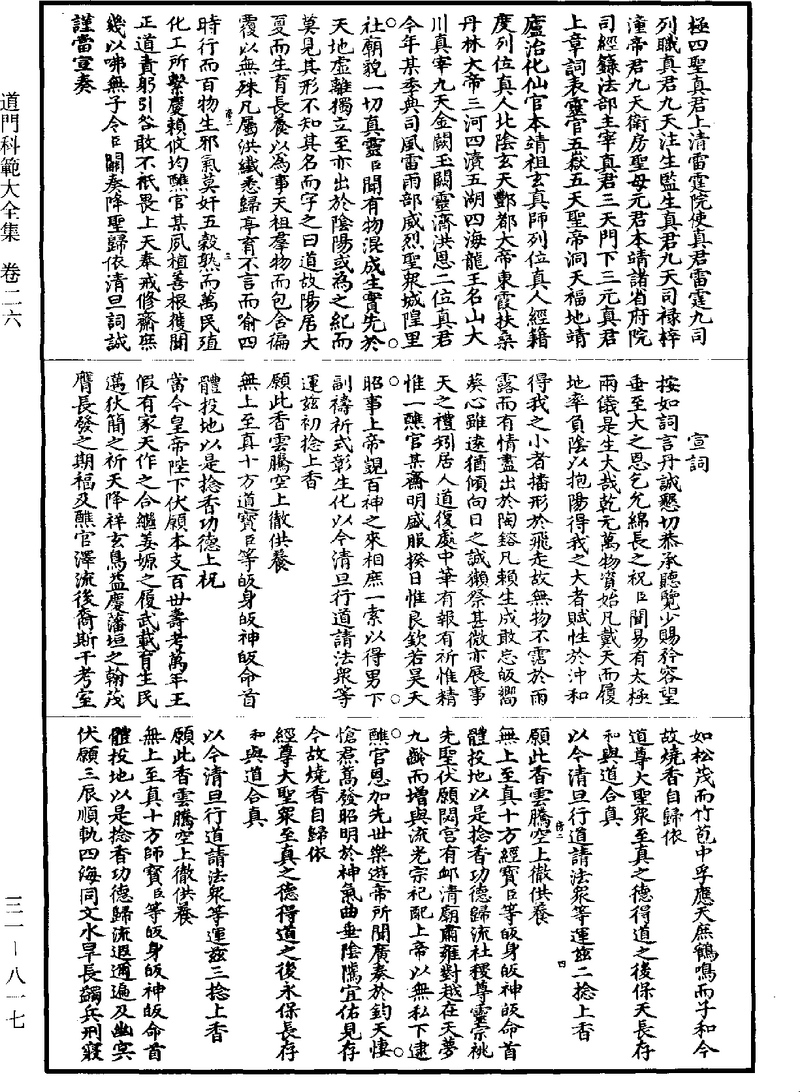 極四聖真君上清雷霆院使真君雷霆九司
列職真君九天注生監生真君九天司祿梓
潼帝君九天衛房聖母元君本靖諸省府院
司經籙法部主宰真君三天門下三元真君
上章詞表靈官五嶽五天聖帝洞天福地靖
廬治化仙官本靖祖玄真師列位真人經籍
度列位真人北陰玄天酆都大帝東霞扶桑
丹林大帝三河四瀆五湖四海龍王名山大
川真宰九天金闕玉闕靈濟洪恩二位真君
今年某季典司風雷雨部威烈聖眾城隍里
社廟貌一切真靈臣聞有物混成生實先於
天地虛離獨立至亦出於陰陽或為之紀而
莫見其形不知其名而字之曰道故陽居大
夏而生育長養以為事天祖羣物而包含徧
覆以無殊凡屬洪纖悉歸亭育不言而喻四
時行而百物生邪氣莫奸五穀熟而萬民殖
化工所繫慶賴攸均醮官某夙植善根獲聞
正道責躬引咎敢不祇畏上天奉戒修齋庶
幾以咈無子今臣關奏降聖歸依清旦詞誠
謹當宣奏
宣詞
按如詞言丹誠懇切恭承聽覽少賜矜容望
垂至大之恩乞允綿長之祝臣聞易有太極
兩儀是生大哉乾元萬物資始凡戴天而履
地率負陰以抱陽得我之大者賦性於沖和
得我之小者播形於飛走故無物不霑於雨
露而有情盡出於陶鎔凡賴生成敢忘皈嚮
葵心雖遠猶傾向日之誠獺祭甚微亦展事
天之禮矧居人道復處中華有報有祈惟精
惟一醮官某齋明盛服揆日惟良欽若昊天
昭事上帝覬百神之來相庶一索以得男下
副禱祈式彰生化以今清旦行道請法眾等
運茲初捻上香
願此香雲騰空上徹供養
無上至真十方道寶臣等皈身皈神皈命首
體投地以是捻香功德上祝
當今皇帝陛下伏願本支百世壽考萬年王
假有家天作之合繼姜嫄之履武載育生民
邁狄簡之祈天降祥玄鳥益慶藩垣之翰茂
膺長發之期福及醮官澤流後裔斯干考室
如松茂而竹苞中孚應天庶鶴鳴而子和今
故燒香自歸依
道尊大聖眾至真之德得道之後保天長存
和與道合真
以今清旦行道請法眾等運茲二捻上香
願此香雲騰空上徹供養
無上至真十方經寶臣等皈身皈神皈命首
體投地以是捻香功德歸流社稷尊靈宗祧
先聖伏願閟宮有卹清廟肅雍對越在天夢
九齡而增與流光宗祀配上帝以無私下逮
醮官恩加先世樂遊帝所聞廣奏於鈞天悽
愴焄蒿發昭明於神氣曲垂陰隲宜佑見存
今故燒香自歸依
經尊大聖眾至真之德得道之後永保長存
和與道合真
以今清旦行道請法眾等運茲三捻上香
願此香雲騰空上徹供養
無上至真十方師寶臣等皈身皈神皈命首
體投地以是捻香功德歸流遐邇遍及幽冥
伏願三辰順軌四海同文水旱長蠲兵刑寢
道門科範大全集 卷二六
三一－八一七
三
四